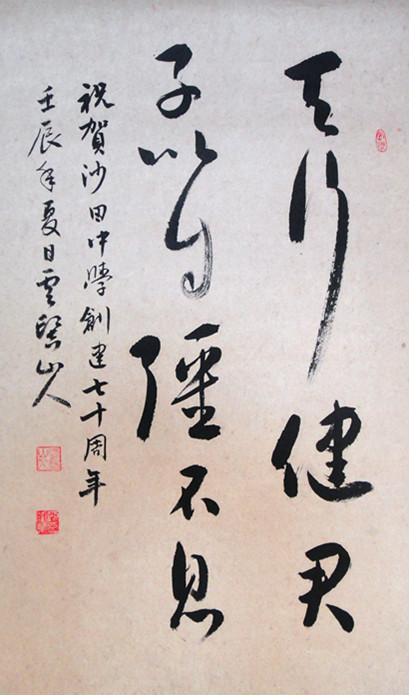 天行健君
子以自彊不息
祝賀沙田中學創建七十周年
壬辰年夏日雲谿山人